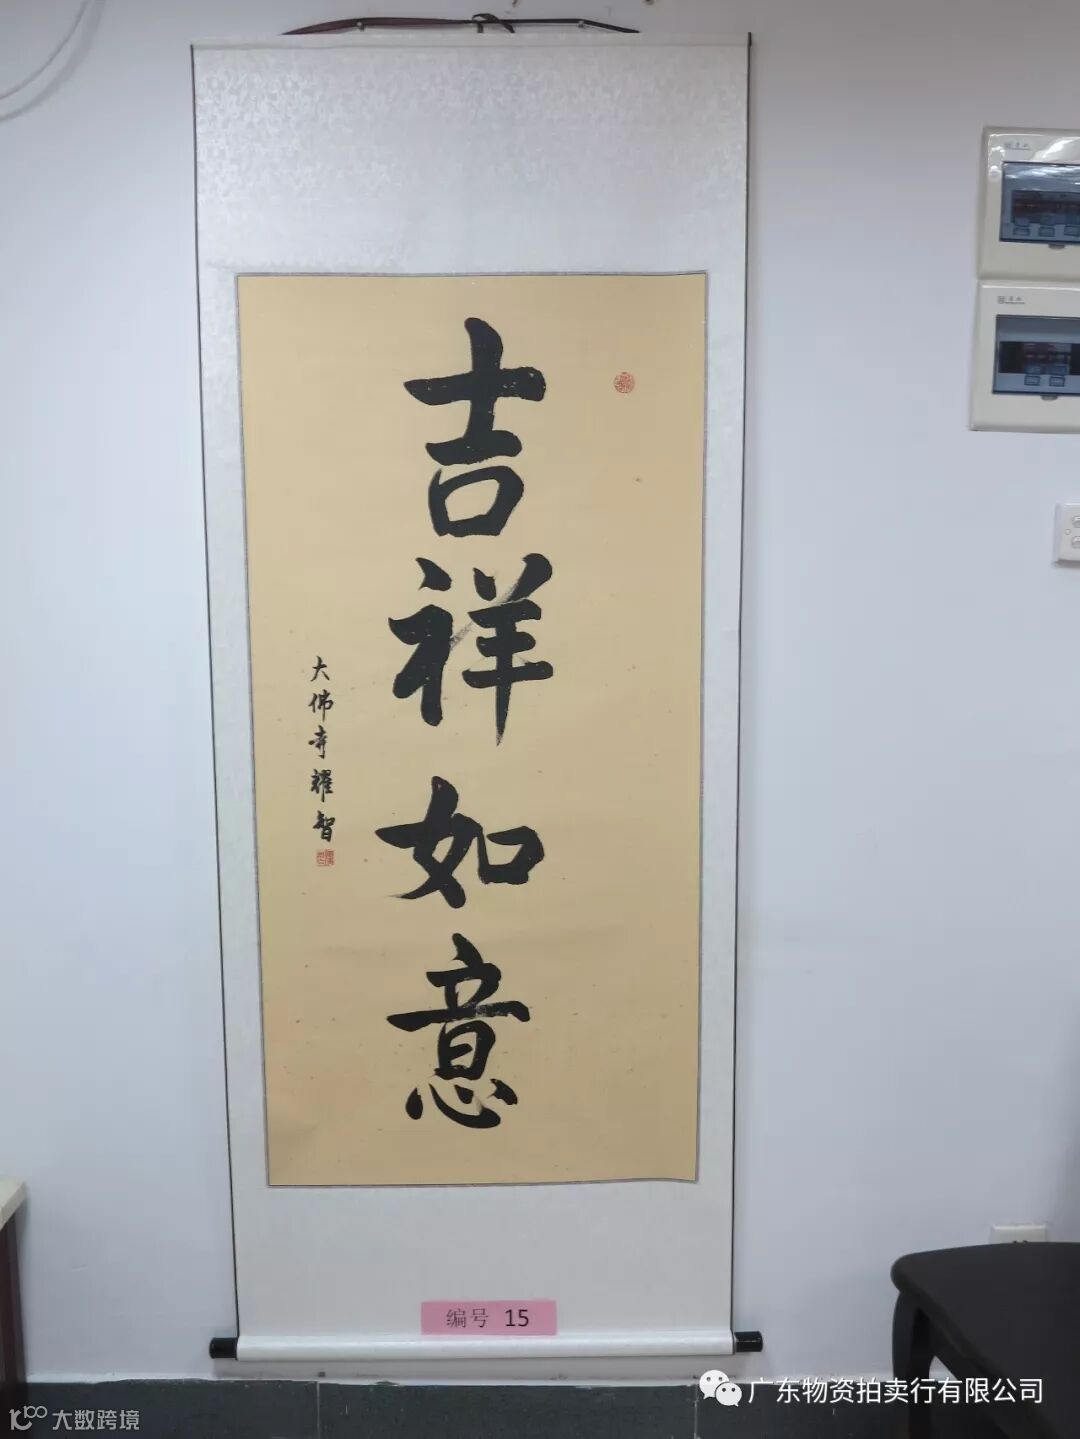 吉祥如意
大佛寺耀智
编号 15
广东物资拍卖行有限公司
大数跨境